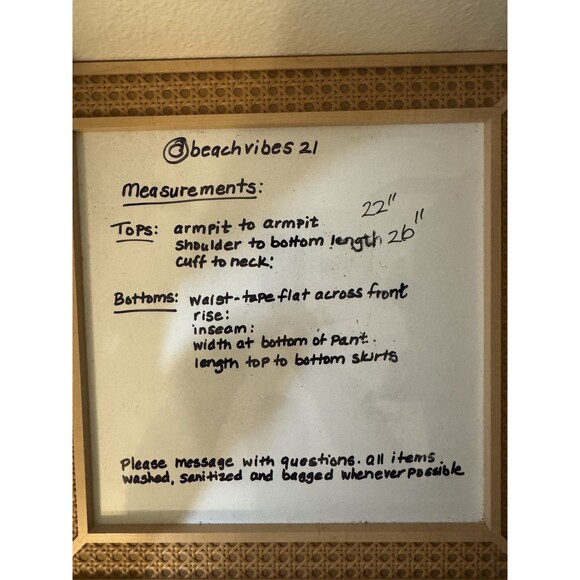 @beachvibes 21
Measurements:
Tops: armpit to armpit 22"
shoulder to bottom length 26"
cuff to neck:
Bottoms: waist-tape flat across front
rise:
inseam:
width at bottom of pant.
length top to bottom skirts
Please message with questions. all items.
washed, sanitized and bagged whenever possible